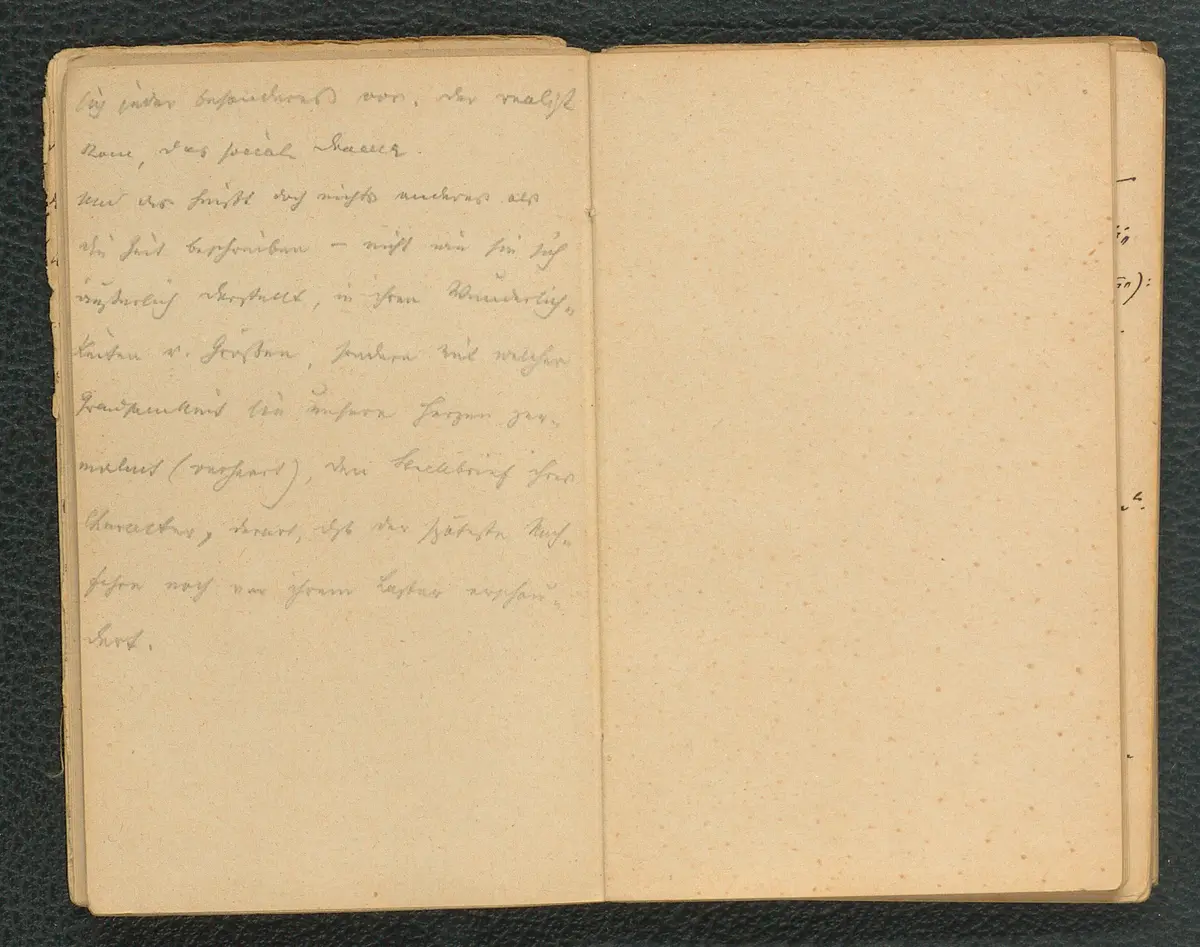 sich jeder besonderes vor. der realist
Rom, das social Drama.
und das heißt doch nichts anderes als
die Zeit beschreiben – nicht wie sie sich
äußerlich darstellt, in ihren Wunderlich-
keiten u. Größen, sondern mit welcher
Grausamkeit sie unsere Herzen zer-
malmt (verheert), den Steckbrief ihres
Charakters, derart, daß der späteste Nach-
fahre noch vor ihrem Laster erschau-
dert.